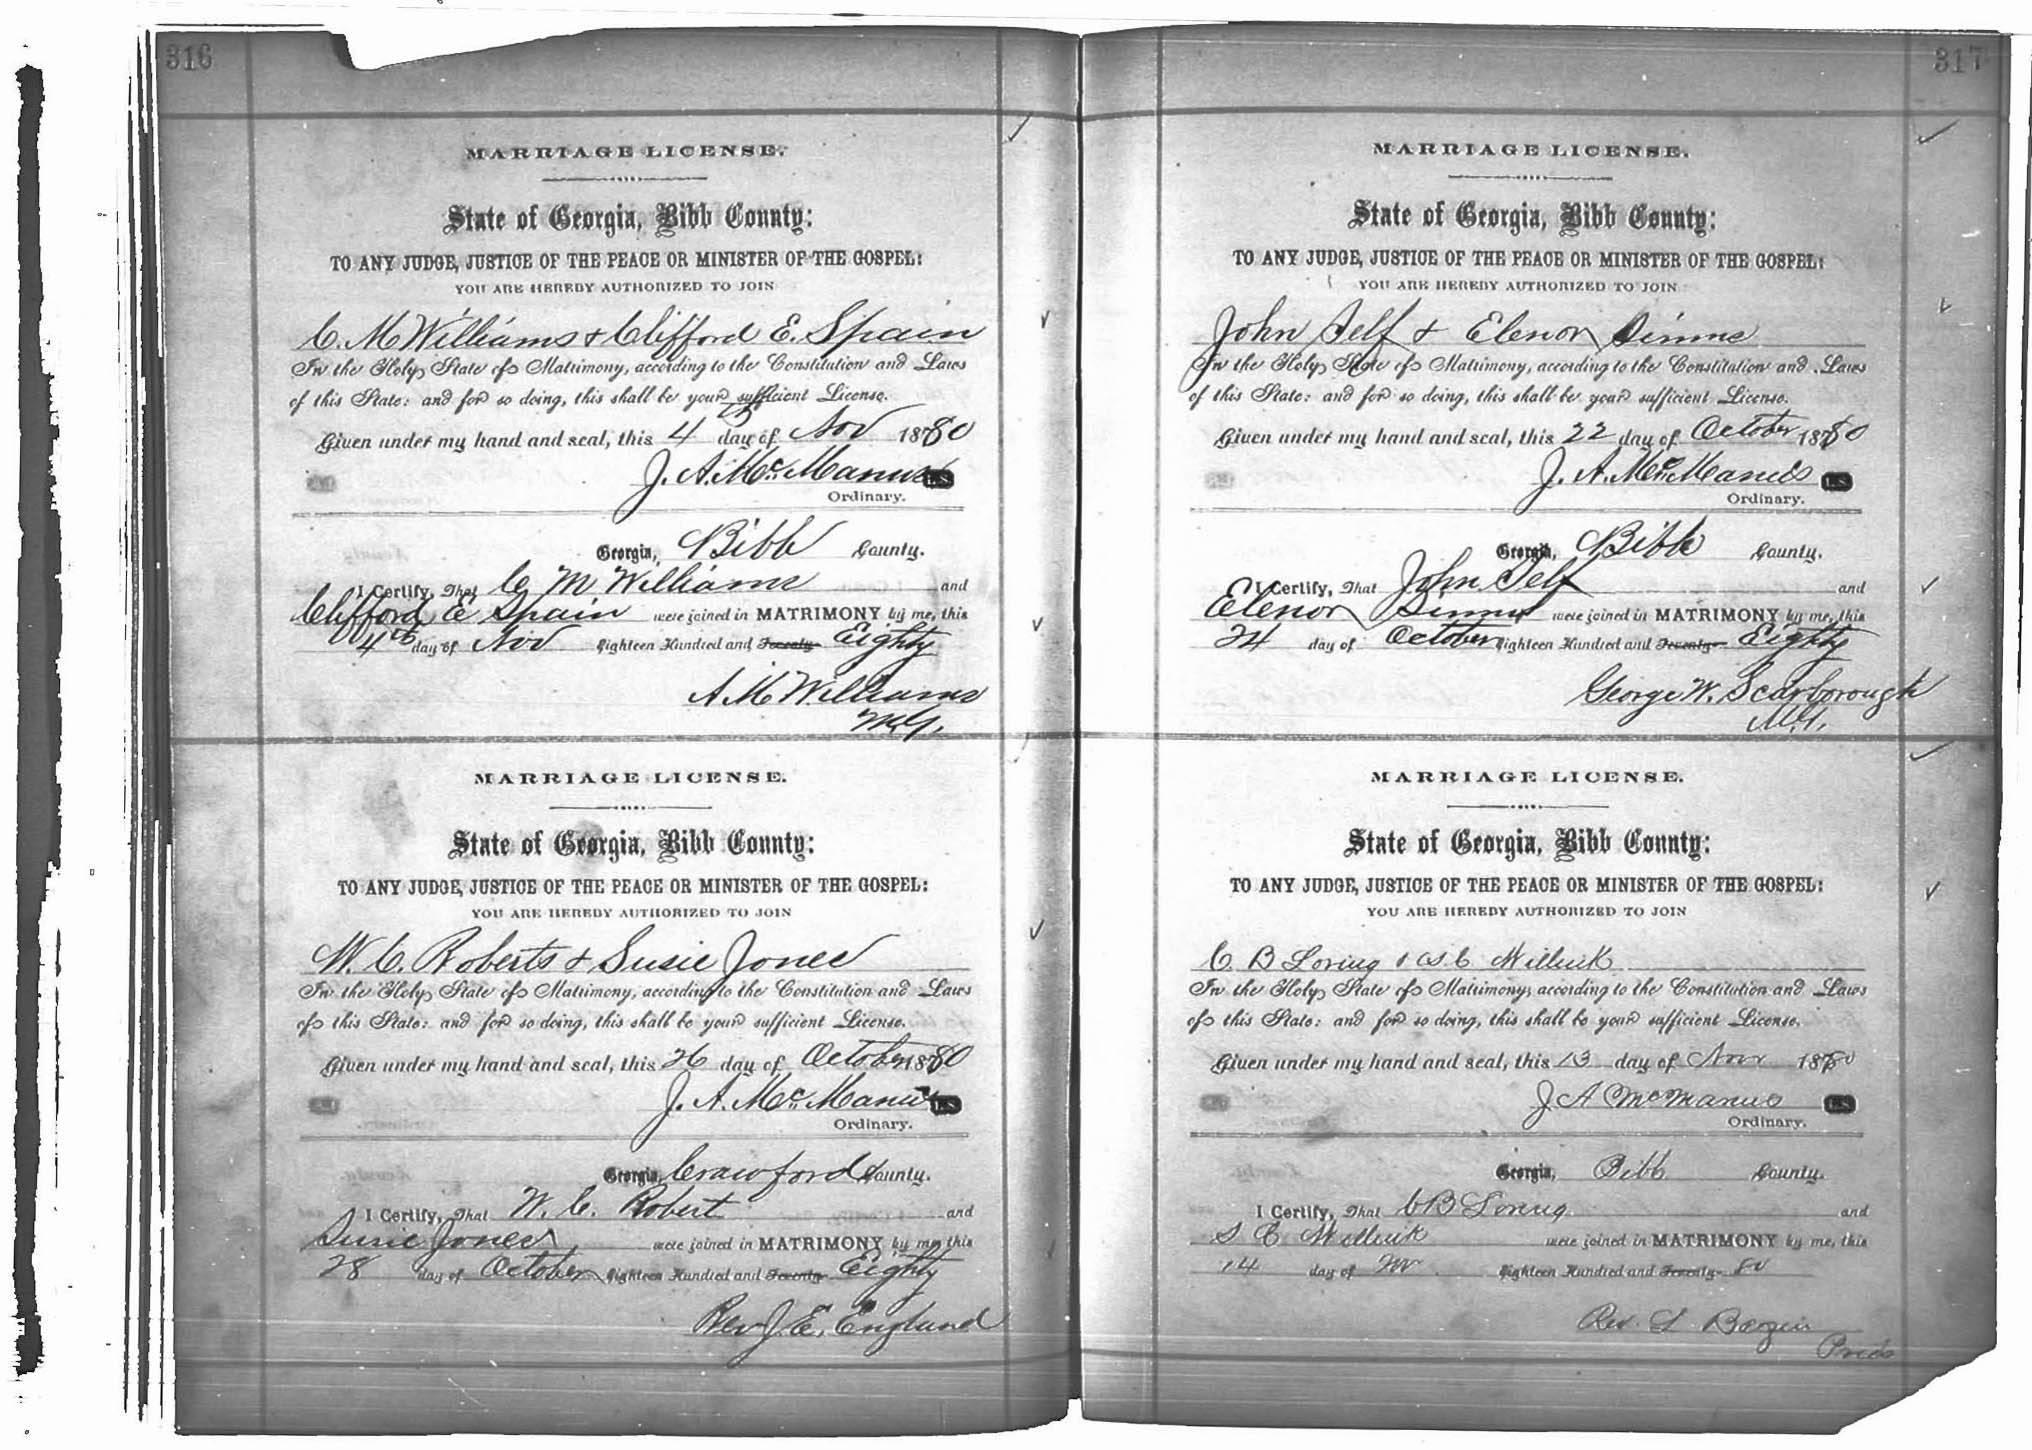 316
MARRIAGE LICENSE.
State of Georgia, Bibb County:
TO ANY JUDGE, JUSTICE OF THE PEACE OR MINISTER OF THE GOSPEL:
YOU ARE HEREBY AUTHORIZED TO JOIN
C. M Williams & Clifford E. Spain
In the Holy State of Matrimony, according to the Constitution and Laws
of this State: and for so doing, this shall be your sufficient License.
Given under my hand and seal, this 4 day of Nov 1880
J. A. McManus L.S.
Ordinary.
Georgia, Bibb County.
I Certify, That C M Williams and
Clifford E Spain were joined in MATRIMONY by me, this
4th day of Nov Eighteen Hundred and Seventy Eighty
A M Williams
M.G.
MARRIAGE LICENSE.
State of Georgia, Bibb County:
TO ANY JUDGE, JUSTICE OF THE PEACE OR MINISTER OF THE GOSPEL:
YOU ARE HEREBY AUTHORIZED TO JOIN
W. C. Roberts & Susie Jones
In the Holy State of Matrimony, according to the Constitution and Laws
of this State: and for so doing, this shall be your sufficient License.
Given under my hand and seal, this 26 day of October 1880
J. A. McManus L.S.
Ordinary.
Georgia, Crawford County.
I Certify, That W. C. Robert and
Susie Jones were joined in MATRIMONY by me this
28 day of October Eighteen Hundred and Seventy Eighty
Rev J. E. England
317
MARRIAGE LICENSE.
State of Georgia, Bibb County:
TO ANY JUDGE, JUSTICE OF THE PEACE OR MINISTER OF THE GOSPEL:
YOU ARE HEREBY AUTHORIZED TO JOIN
John Self & Elenor Simms
In the Holy State of Matrimony, according to the Constitution and Laws
of this State: and for so doing, this shall be your sufficient License.
Given under my hand and seal, this 22 day of October 1880
J. A. McManus L.S.
Ordinary.
Georgia, Bibb County.
I Certify, That John Self and
Elenor Simms were joined in MATRIMONY by me, this
24 day of October Eighteen Hundred and Seventy Eighty
George W. Scarborough
M.G.
MARRIAGE LICENSE.
State of Georgia, Bibb County:
TO ANY JUDGE, JUSTICE OF THE PEACE OR MINISTER OF THE GOSPEL:
YOU ARE HEREBY AUTHORIZED TO JOIN
C. B Loring & S. C
In the Holy State of Matrimony, according to the Constitution and Laws
of this State: and for so doing, this shall be your sufficient License.
Given under my hand and seal, this 13 day of Nov 1880
J A McManus L.S.
Ordinary.
Georgia, Bibb County.
I Certify, That C B Loring and
S C were joined in MATRIMONY by me, this
14 day of Nov Eighteen Hundred and Seventy 80
Rev. L